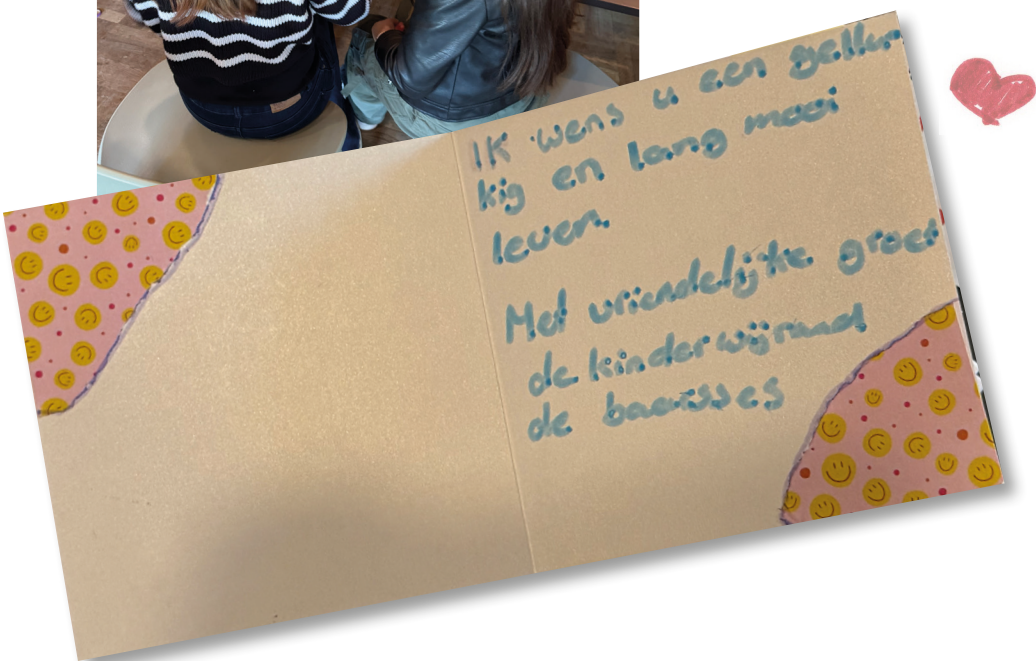 Ik wens u een gelluk
kig en lang mooi
leven.
Met vriendelijke groet
de kinderwijraad
de baasisses